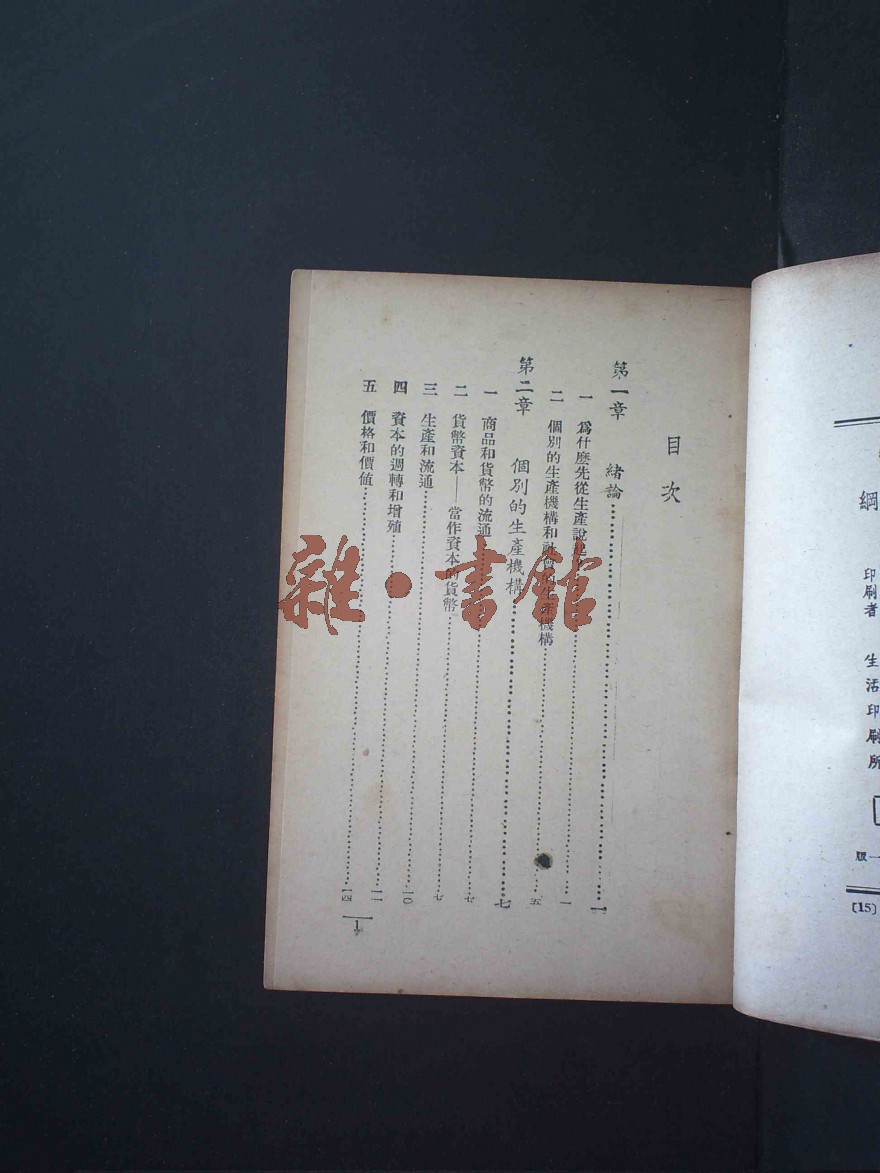 綱
印刷者 生活印刷所
一版
[15]
目次
第一章 緒論……一
一 爲什麽先從生產說起……一
二 個別的生產機構和社會的生產機構……五
第二章 個別的生產機構……七
一 商品和貨幣的流通……七
二 貨幣資本——當作資本的貨幣……七
三 生產和流通……一〇
四 資本的週轉和增殖……一一
五 價格和價値……一四
1
雜·書館